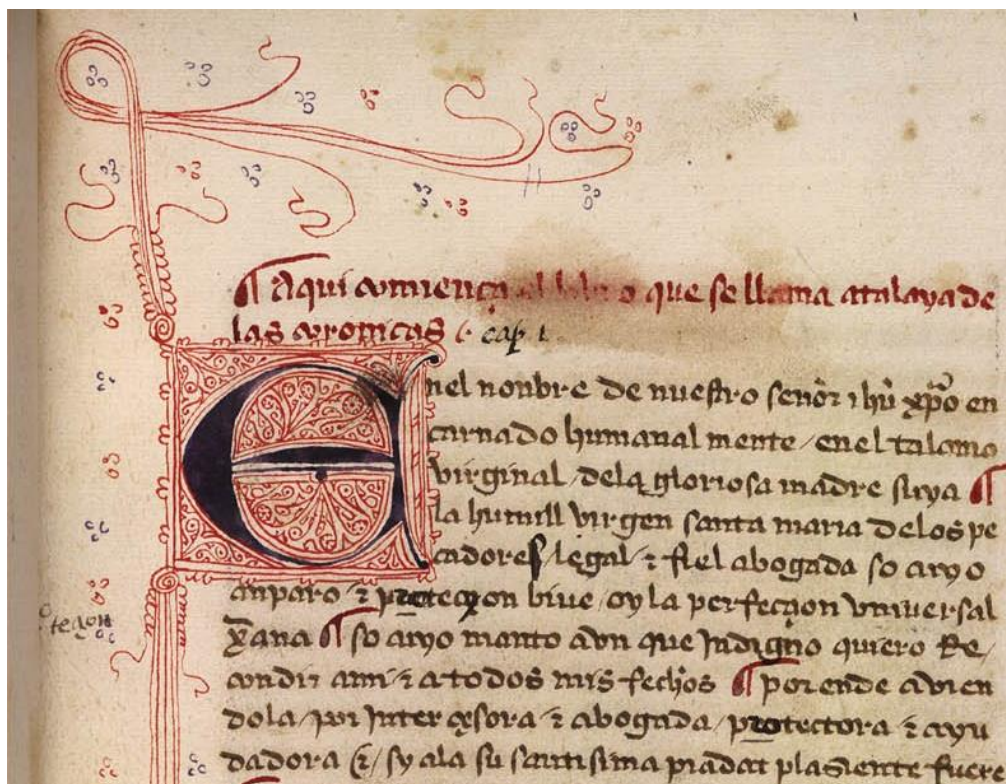 ¶ Aqui comiença el libro que se llama atalaya de
las coronicas ¶ cap i
Enel nonbre de nuestro señor ihu xpo en
carnado humanal mente / enel talamo
virginal / dela gloriosa madre suya ¶
la humill virgen santa maria delos pe
cadores / legal & fiel abogada so cuyo
anparo & proteçion bive / oy la perfeçion vniuersal
xana ¶ so cuyo manto avn que Indigno quiero Re /
condir ami & a todos mis fechos ¶ por ende avien
dola / por Inter çesora & abogada / protectora & ayu
dadora & / sy ala su santisima piadat plasiente fuer